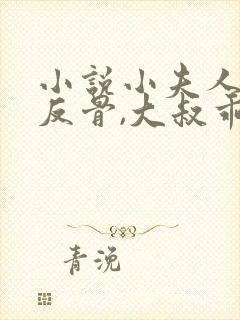 小说小夫人
反骨,大叔乖
青浼